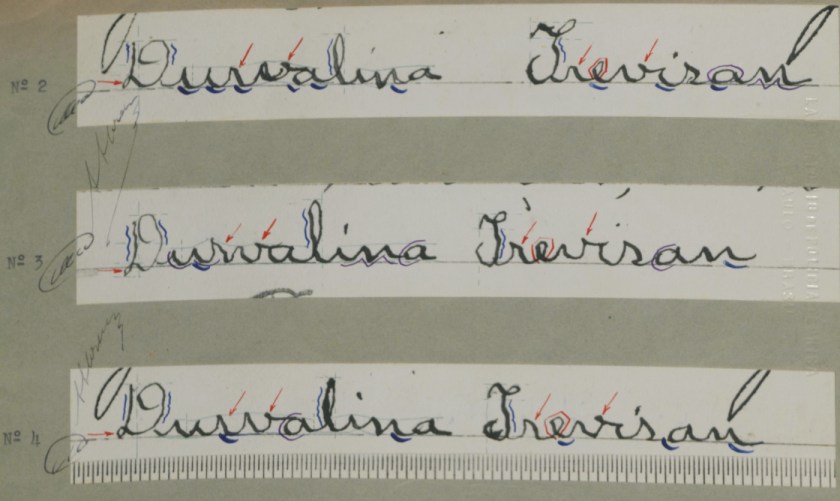 Nº 2 Durvalina Trevisan
Nº 3 Durvalina Trevisan
Nº 4 Durvalina Trevisan